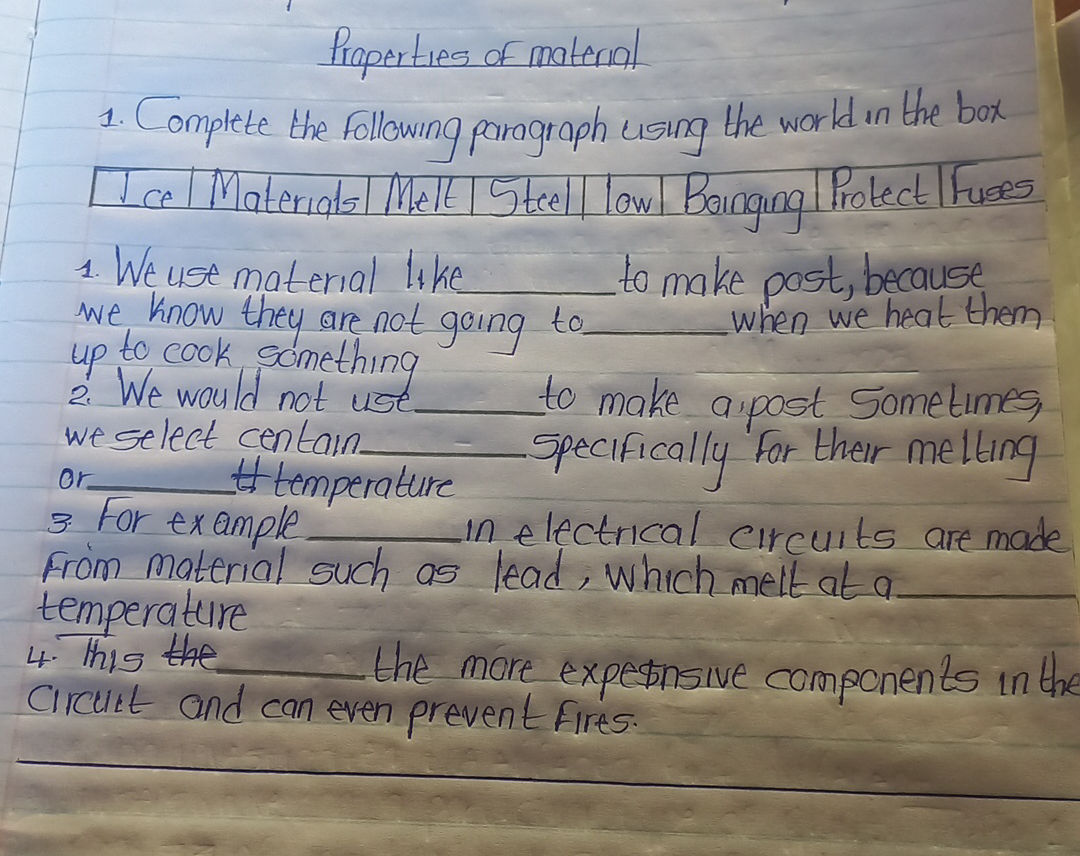 Properties of material
1. Complete the following paragraph using the world in the box
Ice | Materials | Melt | Steel | low | Boinging | Protect | Fuses
1. We use material like ________ to make post, because
we know they are not going to ________ when we heat them
up to cook something
2. We would not use ________ to make a post Sometimes,
we select centain ________ specifically for their melting
or ________ temperature
3. For example ________ in electrical circuits are made
From material such as lead, which melt at a ________
temperature
4. This the ________ the more expensive components in the
Circuit and can even prevent Fires.